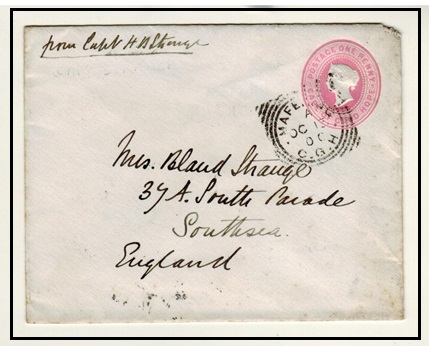 from Capt H B Strange
POSTAGE ONE PENNY
HOPE
MAFEKING
A
OC
0
C.G.H
Mrs. Bland Strange
37 A. South Parade
Southsea
England